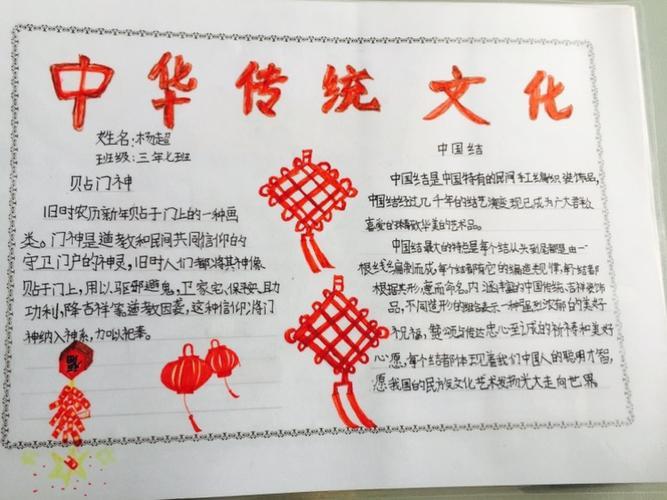 中华传统文化
姓名:杨超
班级:三年七班
贴门神
旧时农历新年贴于门上的一种画
类。门神是道教和民间共同信仰的
守卫门户的神灵,旧时人们都将其神像
贴于门上,用以驱邪避鬼,卫家宅,保平安,助
功利,降吉祥等,道教因袭,这种信仰,将门
神纳入神系,加以祀奉。
福
中国结
中国结是中国特有的民间手工编织装饰品,
中国结经过几千年的结艺演变现已成为广大群众
喜爱的精致华美的艺术品。
中国结最大的特点是每个结从头到尾都是由一
根线编制而成,每个结都有它的编造规律,每结都
根据其形,意而命名,内涵丰富的中国传统吉祥装饰
品,不同造形的表示一种浓郁的美好
祝福,赞颂与传达衷心至诚的祈祷和美好
心愿,每个结都体现着我们中国人的聪明才智,
愿我国的民族文化艺术发扬光大走向世界。